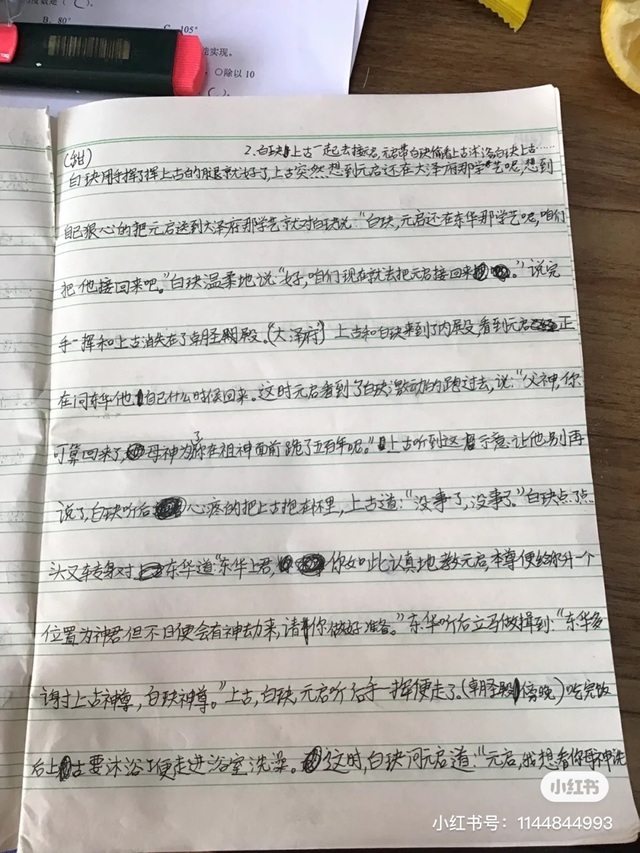 B. 80°
C. 105°
能实现。
○除以10
(甜)
2.白玦上古一起去接启,元启带白玦偷看上古沐浴白玦上古……
白玦用手挥了挥上古的腿就好了,上古突然想到元启还在大泽府那学艺呢,想到
自己狠心的把元启送到大泽府那学艺就对白玦说“白玦,元启还在东华那学艺呢,咱们
把他接回来吧。”白玦温柔地说“好,咱们现在就去把元启接回来。”说完
手一挥和上古消失在了朝圣殿。(大泽府)上古和白玦来到了内殿,看到元启正
在问东华他自己什么时候回来。这时元启看到了白玦激动的跑过去,说:“父神,你
可算回来了,母神为了你在祖神面前跪了五百年呢。”上古听到这示意让他别再
说了,白玦听后心疼的把上古抱在怀里,上古道:“没事了,没事了。”白玦点了点
头又转身对东华道“东华上君,你如此认真地教元启,本尊便给你升一个
位置为神君但不日便会有神劫来,请你做好准备。”东华听后立马做揖到:“东华多
谢上古神尊,白玦神尊。”上古,白玦,元启听后手一挥便走了。(朝圣殿傍晚)吃完饭
后上古要沐浴了便走进浴室洗澡。这时,白玦问元启道:“元启,你想看你母神洗
小红书
小红书号:1144844993